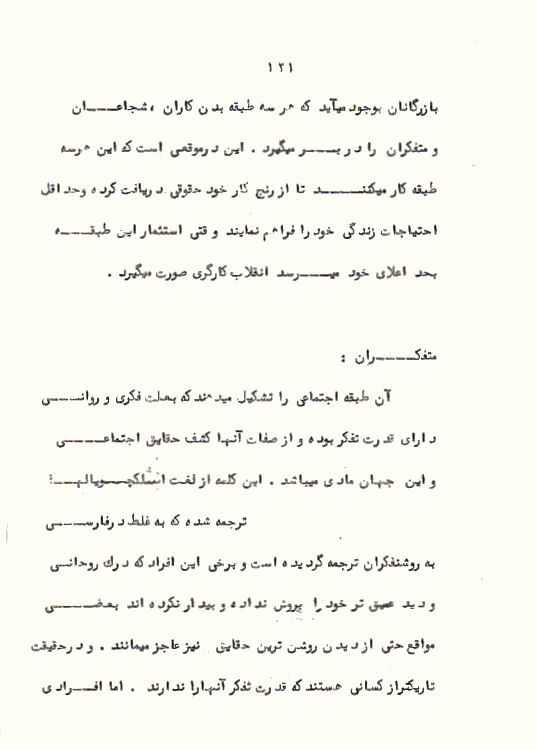 ۱۲۱
بازرگانان بوجود میآید که هر سه طبقه بدن کاران ، شجاعـــان
و متفکران را در بـــر میگیرد . این در موقعی است که این هر سه
طبقه کار میکننـــد تا از رنج کار خود حقوقی دریافت کرده وحد اقل
احتیاجات زندگی خود را فراهم نمایند وقتی استثمار این طبقـــه
بحد اعلای خود میـــرسد انقلاب کارگری صورت میگیرد .
متفکـــران :
آن طبقه اجتماعی را تشکیل میدهند که بعلت فکری و روانـــی
دارای قدرت تفکر بوده و از صفات آنها کشف حقایق اجتماعـــی
و این جهان مادی میباشد . این کلمه از لغت
ترجمه شده که به غلط در فارســـی
به روشنفکران ترجمه گردیده است و برخی این افراد که درك روحانـــی
و دید عمیق تر خود را پروش نداده و بیدار نکرده اند بعضـــی
مواقع حتی از دیدن روشن ترین حقایق نیز عاجز میمانند . و در حقیقت
تاریکتر از کسانی هستند که قدرت تفکر آنها را ندارند . اما افـــرادی